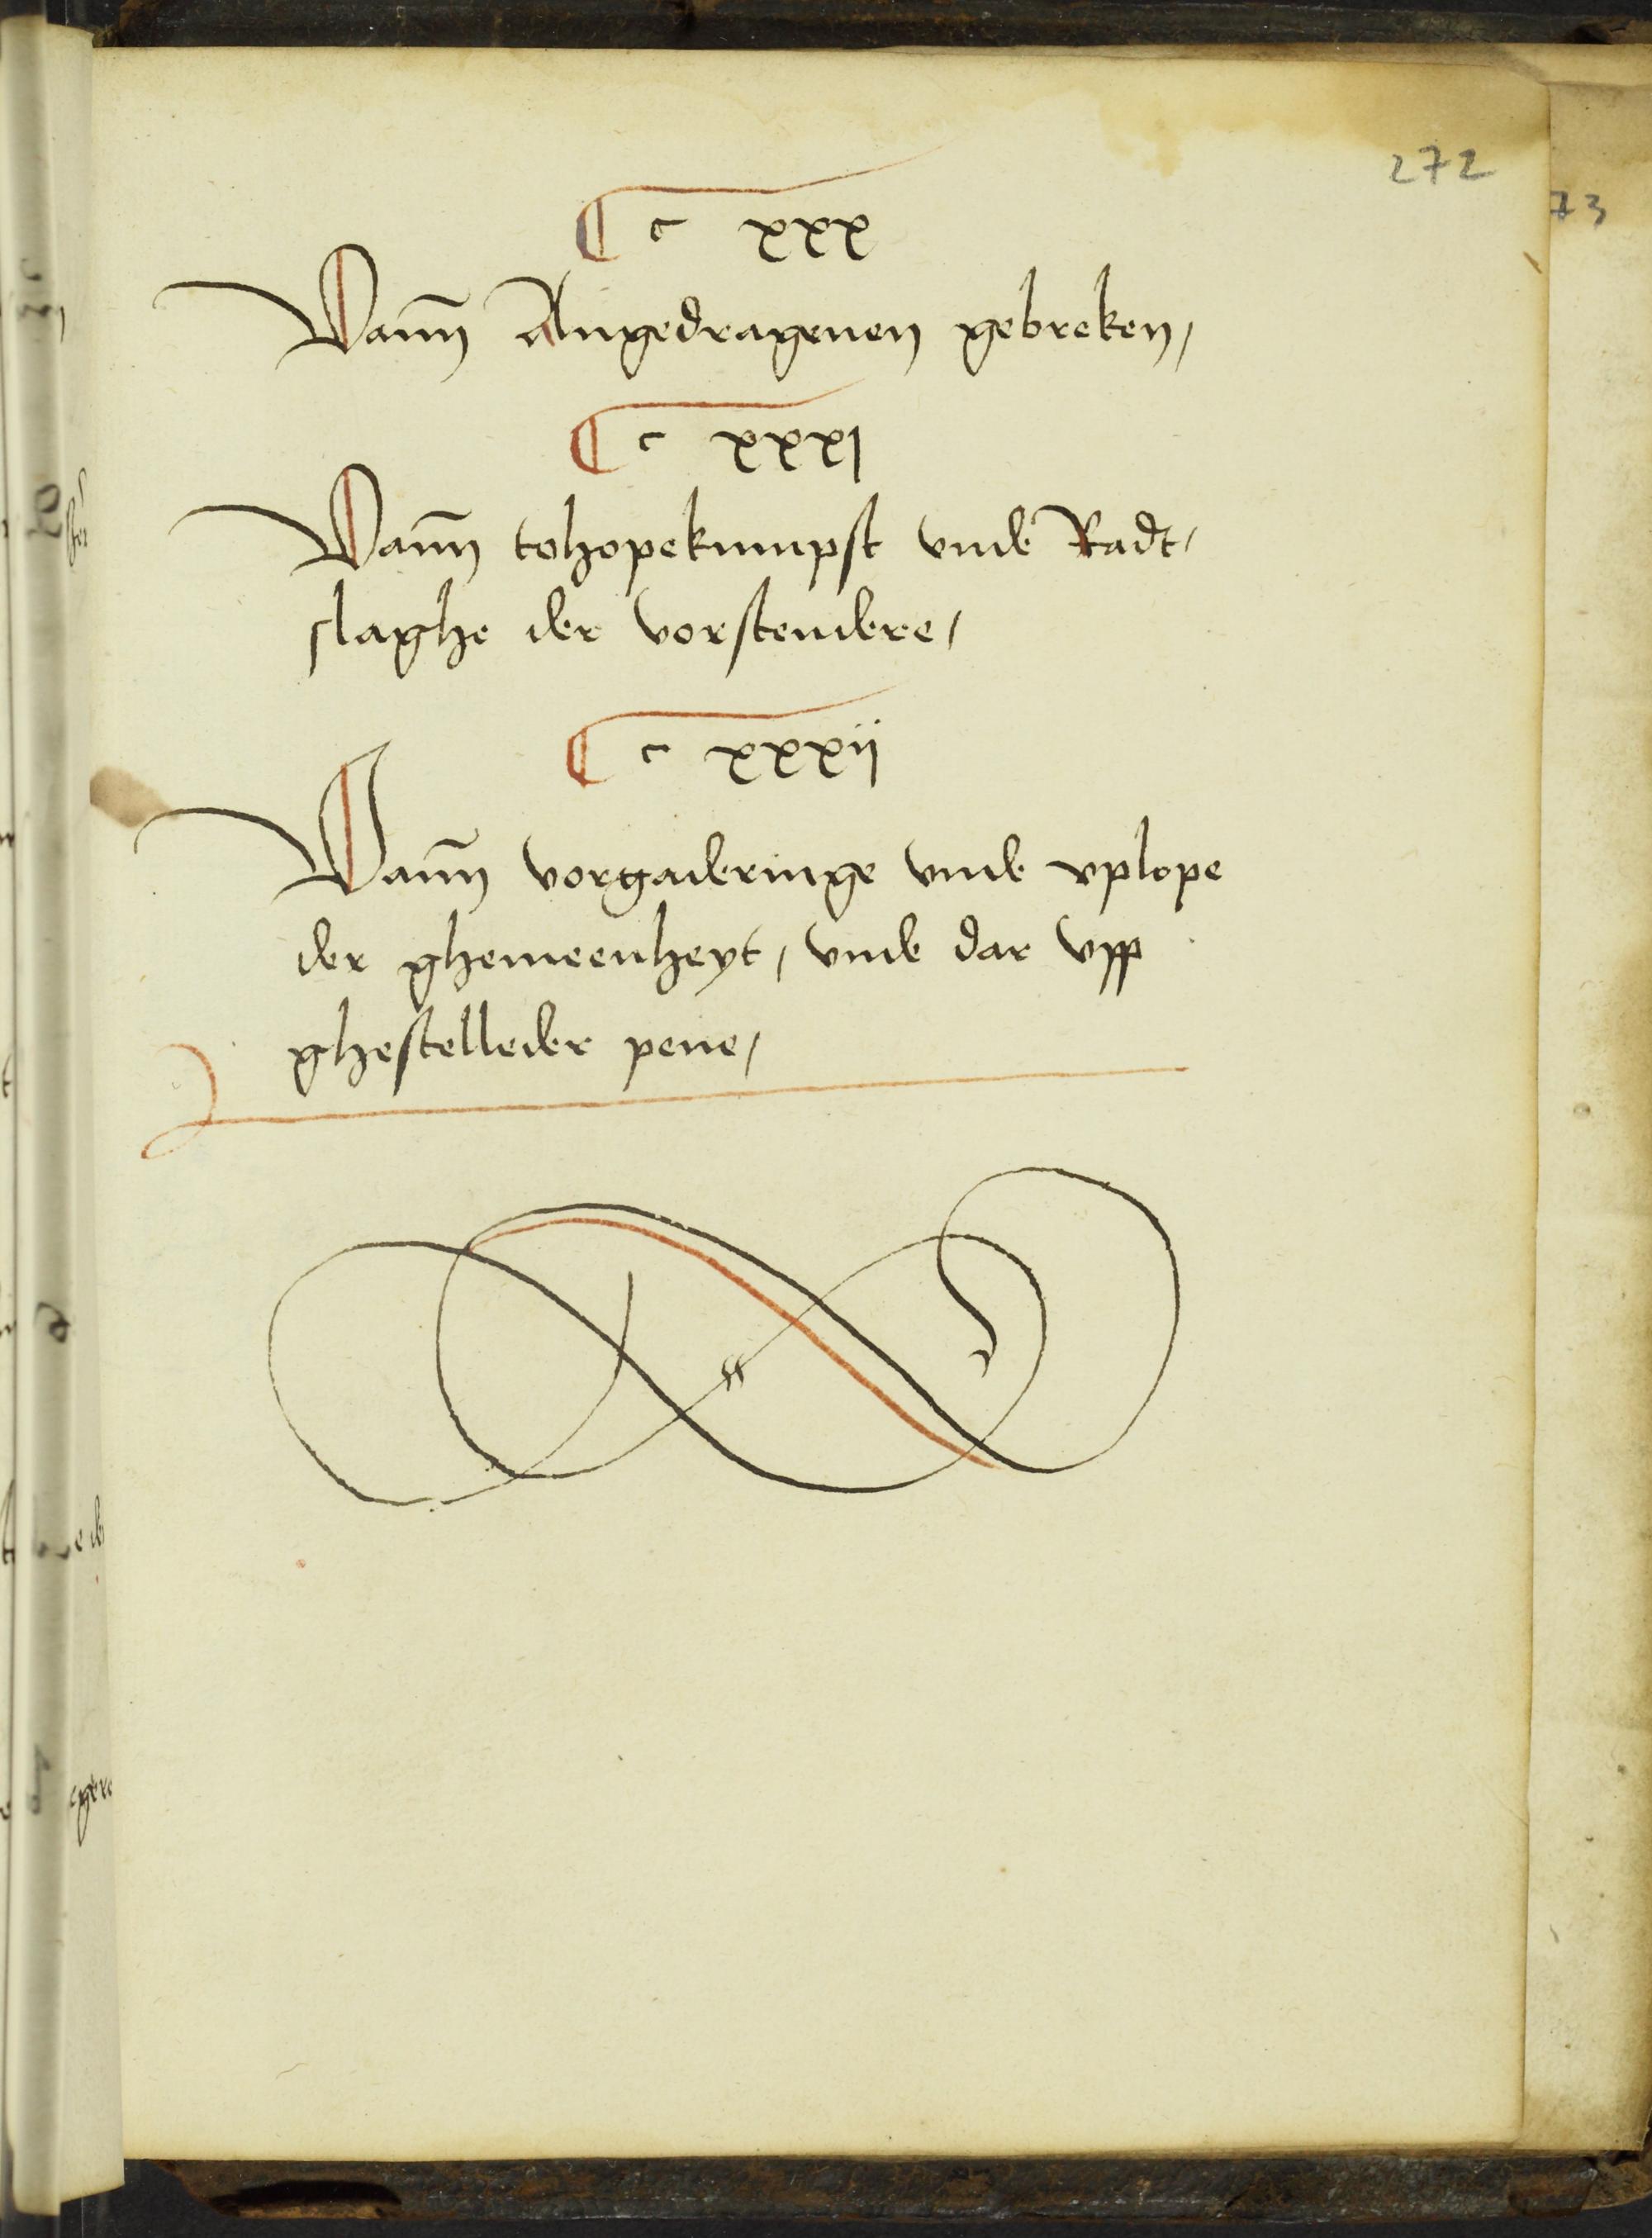 272
73
¶ c xxx
Vann̄ Angedragenen gebreken,
¶ c xxxı
Vann̄ tohopekumpst vnde Radt,
slaghe der vorstendere,
¶ c xxxij
Vann̄ vorgaderinge vnde vplope
der ghemeenheyt, vnde dar vpp
ghestelleder pene,